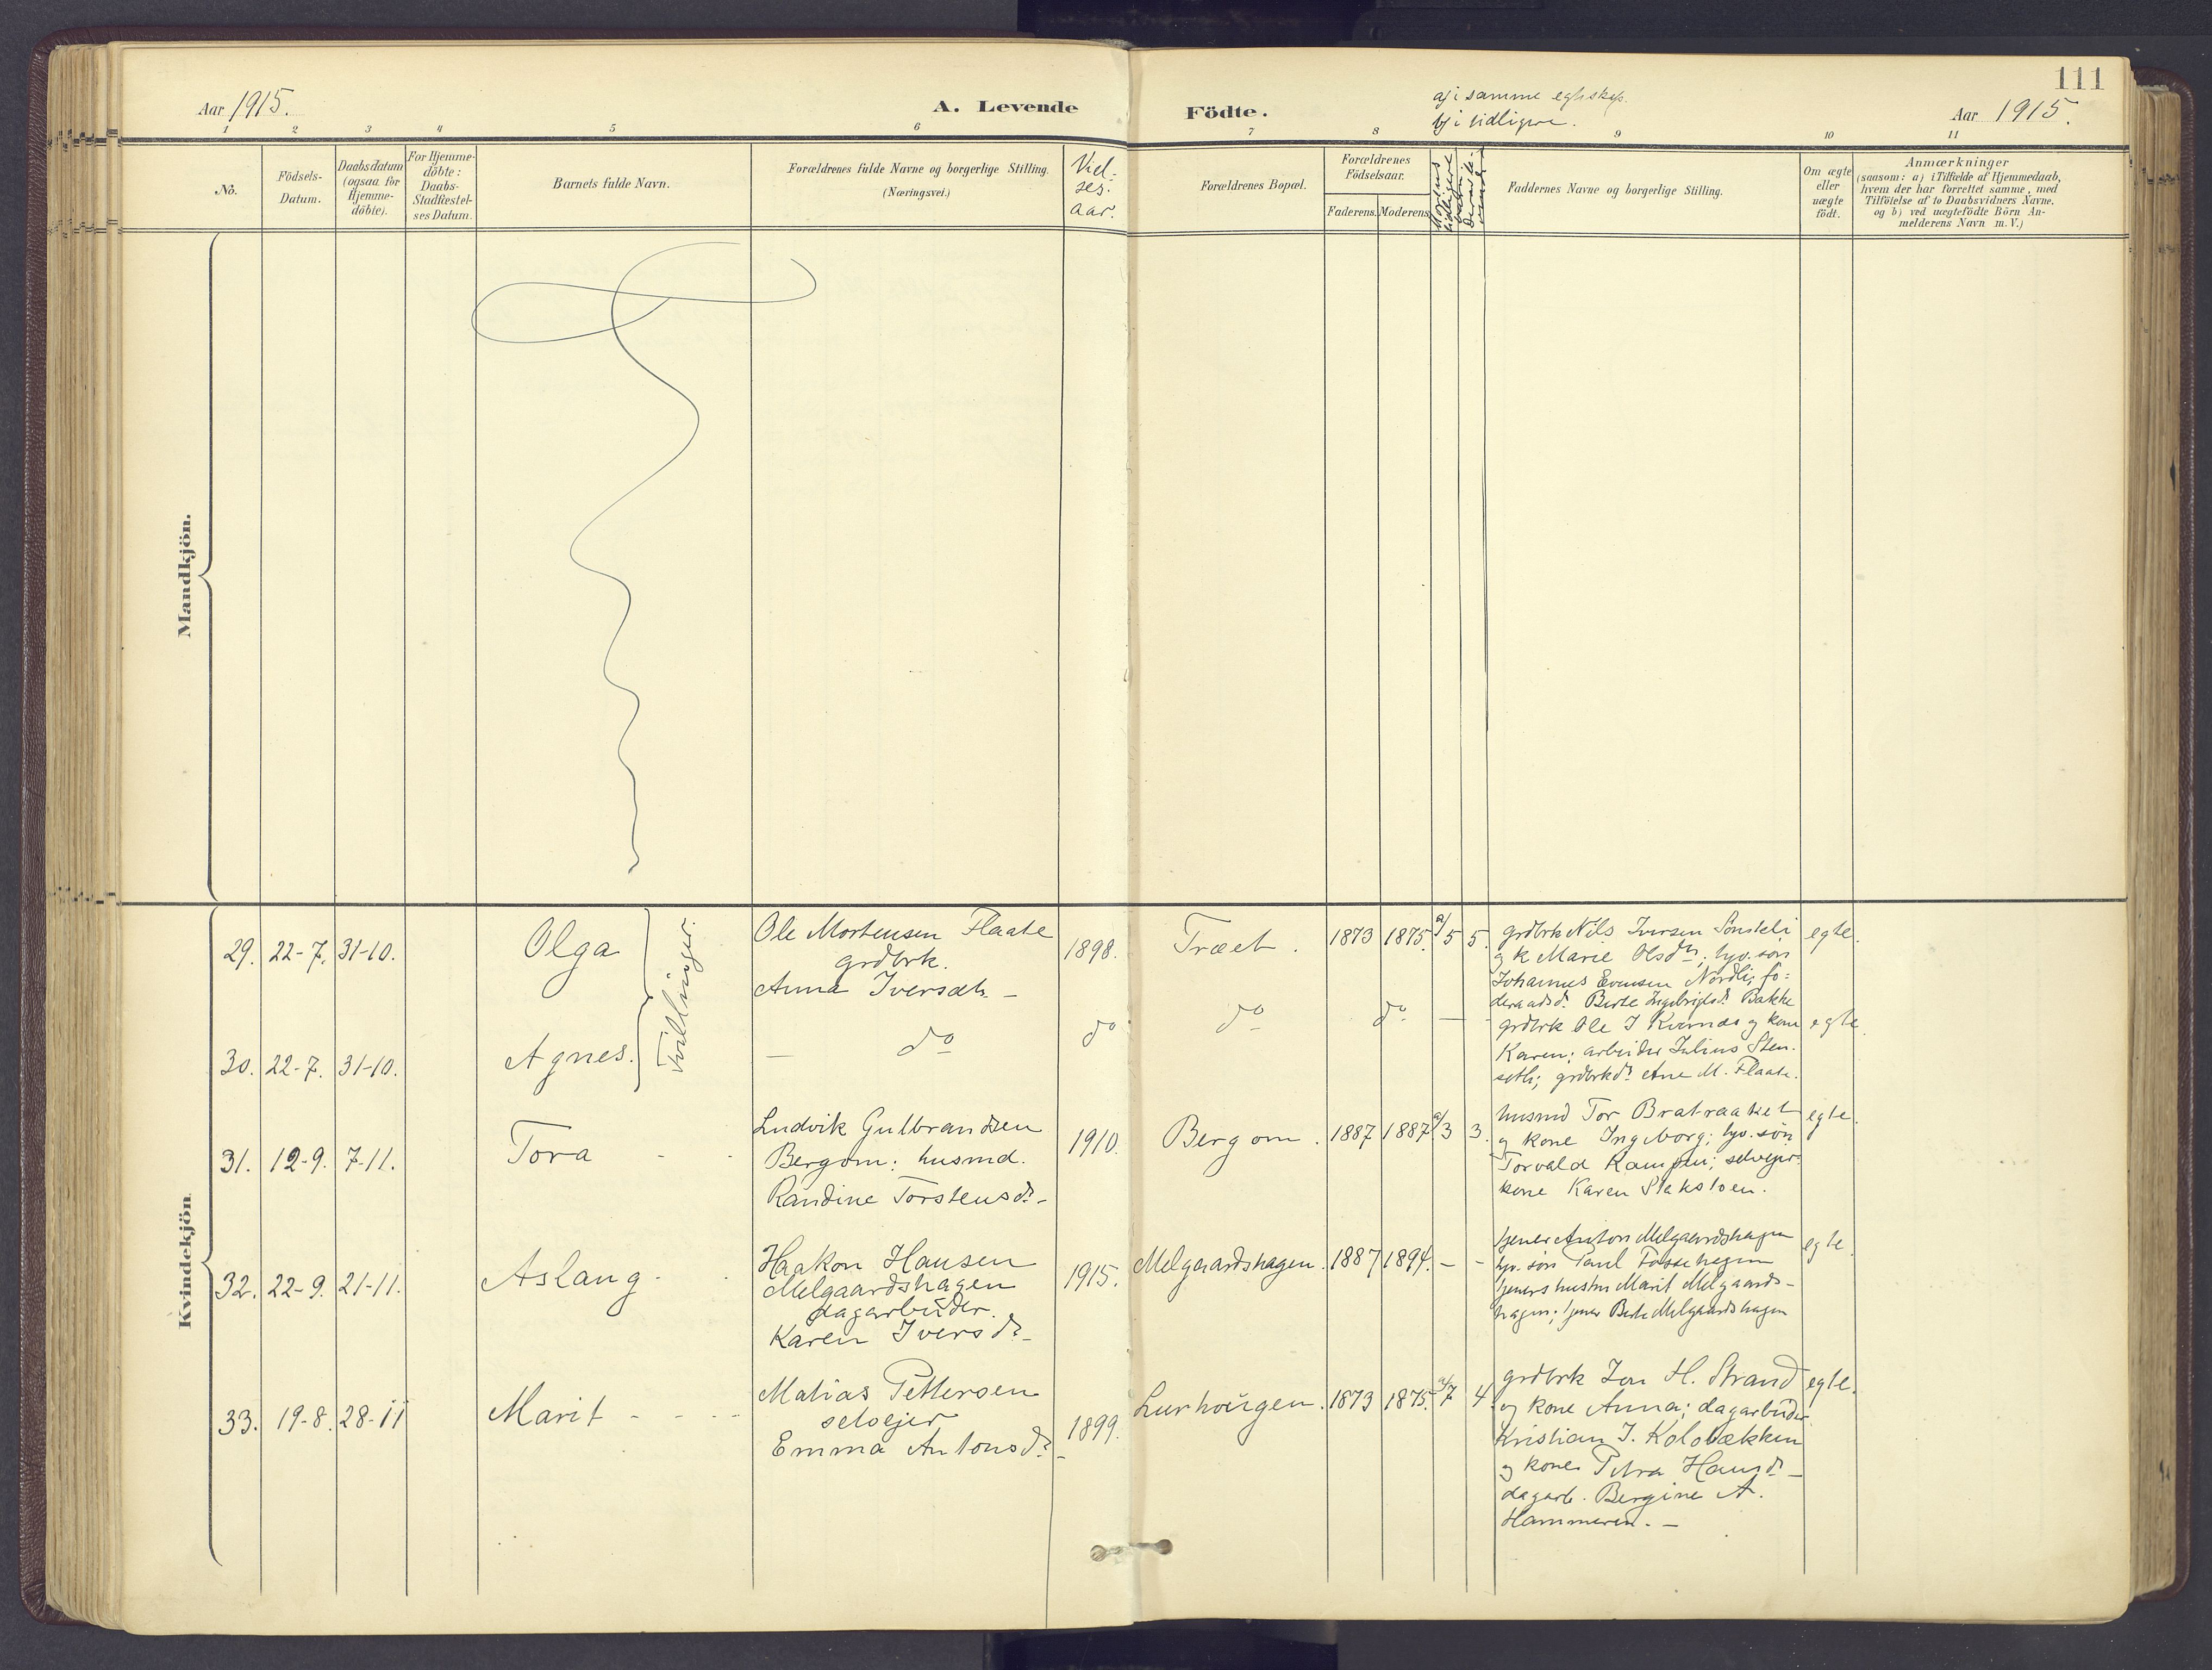 111
Aar 1915.
A. Levende
Födte.
a) i samme egtskap.
b) i tidligere.
Aar 1915.
1 2 3 4 5 6 7 8 9 10 11
No.
Födsels-
Datum.
Daabsdatum
(ogsaa for
Hjemme-
döbte).
For Hjemme-
döbte:
Daabs-
Stadfæstel-
ses Datum.
Barnets fulde Navn.
Forældrenes fulde Navne og borgerlige Stilling.
(Næringsvei.)
Viel-
ses-
aar.
Forældrenes Bopæl.
Forældrenes
Födselsaar.
Faderens.
Moderens.
Faddernes Navne og borgerlige Stilling.
Om ægte
eller
uægte
födt.
Anmærkninger
(saasom: a) i Tilfælde af Hjemmedaab,
hvem der har forrettet samme, med
Tilföielse af to Daabsvidners Navne.
og b) ved uægtefödte Börn An-
melderens Navn m. V.)
Mandkjön.
Kvindekjön
29. 22-7. 31-10. Olga
Tvillinger.
Ole Mortensen Flaate
grdbrk.
Anna Iversdtr. -
1898. Træet. 1873 1875 a/5 5.
grdbrk Nils Iversen Sönsteli
og k Marie Olsdtr; lyv. søn
Johannes Evensen Nordli; fö=
deraadsdr. Berte Ingebrigtsdr. Bakke
egte.
30. 22-7. 31-10. Agnes.
— do do do do — -
grdbrk Ole J Kvernæs og kone
Karen; arbeider Julius Sten-
setli; grdbrkdr. Ane M. Flaate.
egte.
31. 12-9. 7-11. Tora - -
Ludvik Gulbrandsen
Bergom: husmd.
Randine Torstensdr. -
1910. Bergom. 1887 1887 a/3 3.
husmd Tor Bratraaket
og kone Ingeborg; lyv. søn
Torvald Kampen; selveier-
kone Karen Slaksloen.
egte.
32. 22-9. 21-11. Aslaug - -
Haakon Hansen
Melgaardshagen
dagarbeider.
Karen Iversdr. -
1915. Melgaardshagen. 1887 1894. - -
tjener Anton Melgaardshagen
lyv. søn Paul Fossehagen
tjeners hustru Marit Melgaards-
hagen; tjener Berte Melgaardshagen
egte.
33. 19-8. 28-11 Marit - - - -
Matias Pettersen
selvejer
Emma Antonsdr. -
1899. Lurhougen. 1873 1875. a/7 4.
grdbrk Jon H. Strand
og kone Anna; dagarbeider
Kristian J. Kolobækken
og kone Petra Hansdr. -
dagarb. Bergine A.
Hammeren. -
egte.